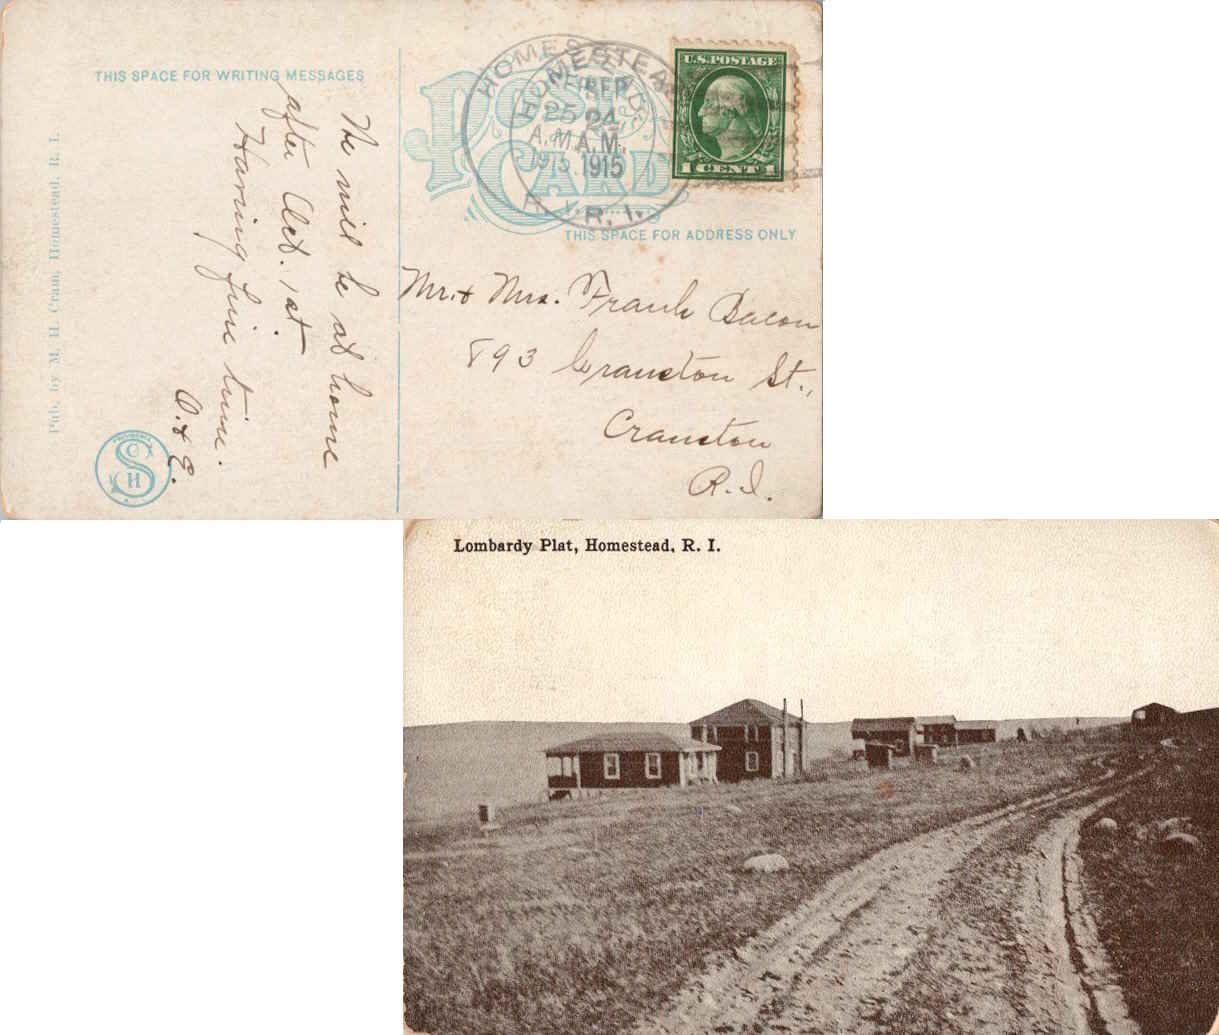 THIS SPACE FOR WRITING MESSAGES
POST
CARD
THIS SPACE FOR ADDRESS ONLY
Pub. by M. H. Cram, Homestead, R. I.
HOMESTEAD
SEP
25
A.M.
1915
R. I.
HOMESTEAD
SEP
24
A.M.
1915
R. I.
U.S. POSTAGE
1 CENT 1
We will be at home
after Oct. 1st
Having fine time.
O. & E.
Mr. & Mrs. Frank Bacon
893 Cranston St.,
Cranston
R.I.
PROVIDENCE
S
O
H
Lombardy Plat, Homestead, R. I.